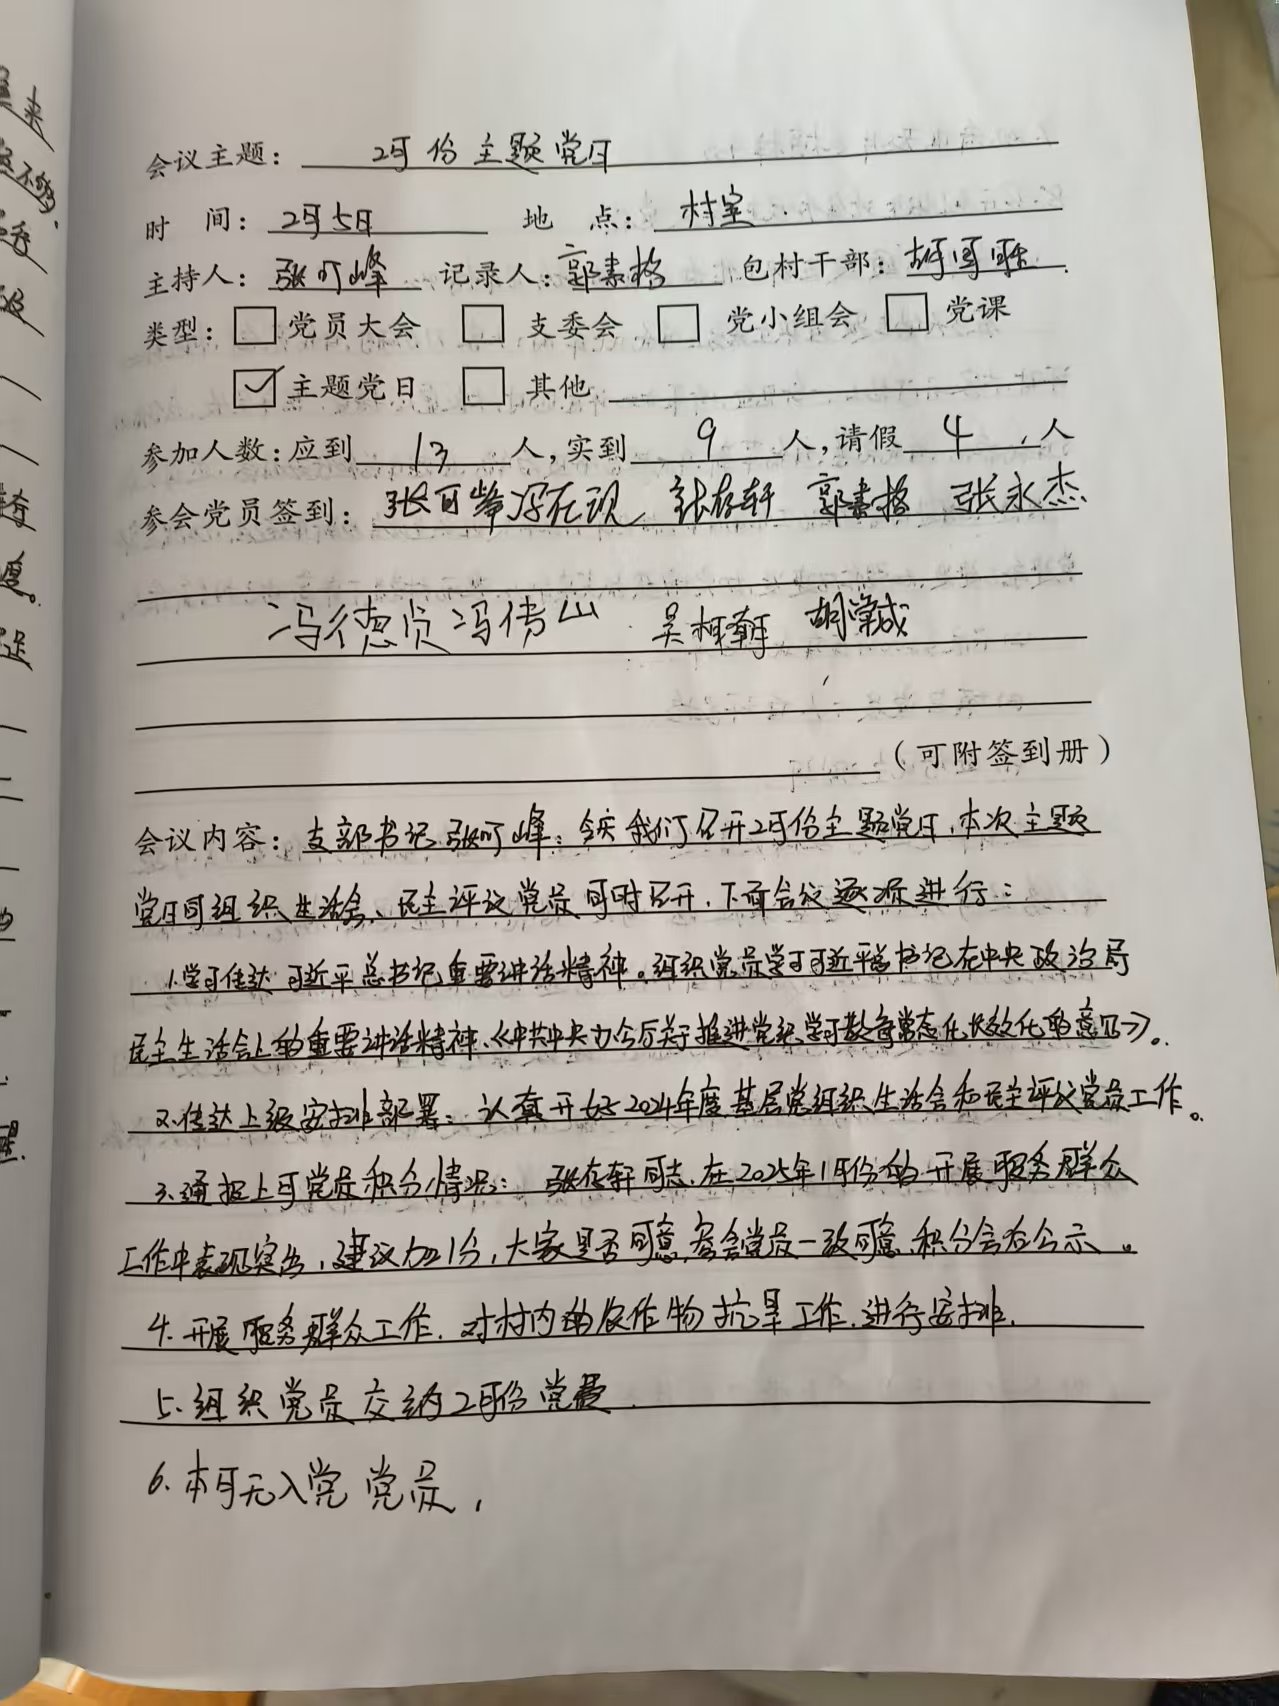 会议主题: 2月份主题党日
时 间: 2月5日 地 点: 村室
主持人: 张可峰 记录人: 郭素格 包村干部: 胡
类型: 党员大会 支委会 党小组会 党课
主题党日 其他
参加人数: 应到 13 人, 实到 9 人, 请假 4 人
参会党员签到: 张可峰 冯在现 张存轩 郭素格 张永杰
冯德贤 冯传山 吴柯朝 胡荣成
(可附签到册)
会议内容: 支部书记张可峰: 今天我们召开2月份主题党日, 本次主题
党日同组织生活会、民主评议党员同时召开, 下面会议逐项进行:
1.学习传达习近平总书记重要讲话精神。组织党员学习习近平总书记在中央政治局
民主生活会上的重要讲话精神、《中共中央办公厅关于推进党纪学习教育常态化长效化的意见》。
2.传达上级安排部署: 认真开好2024年度基层党组织生活会和民主评议党员工作。
3.通报上月党员积分情况: 张存轩同志, 在2025年1月份的开展服务群众
工作中表现突出, 建议加1分, 大家是否同意, 参会党员一致同意, 积分会后公示。
4.开展服务群众工作, 对村内的农作物抗旱工作, 进行安排.
5.组织党员交纳2月份党费.
6.本月无入党党员,